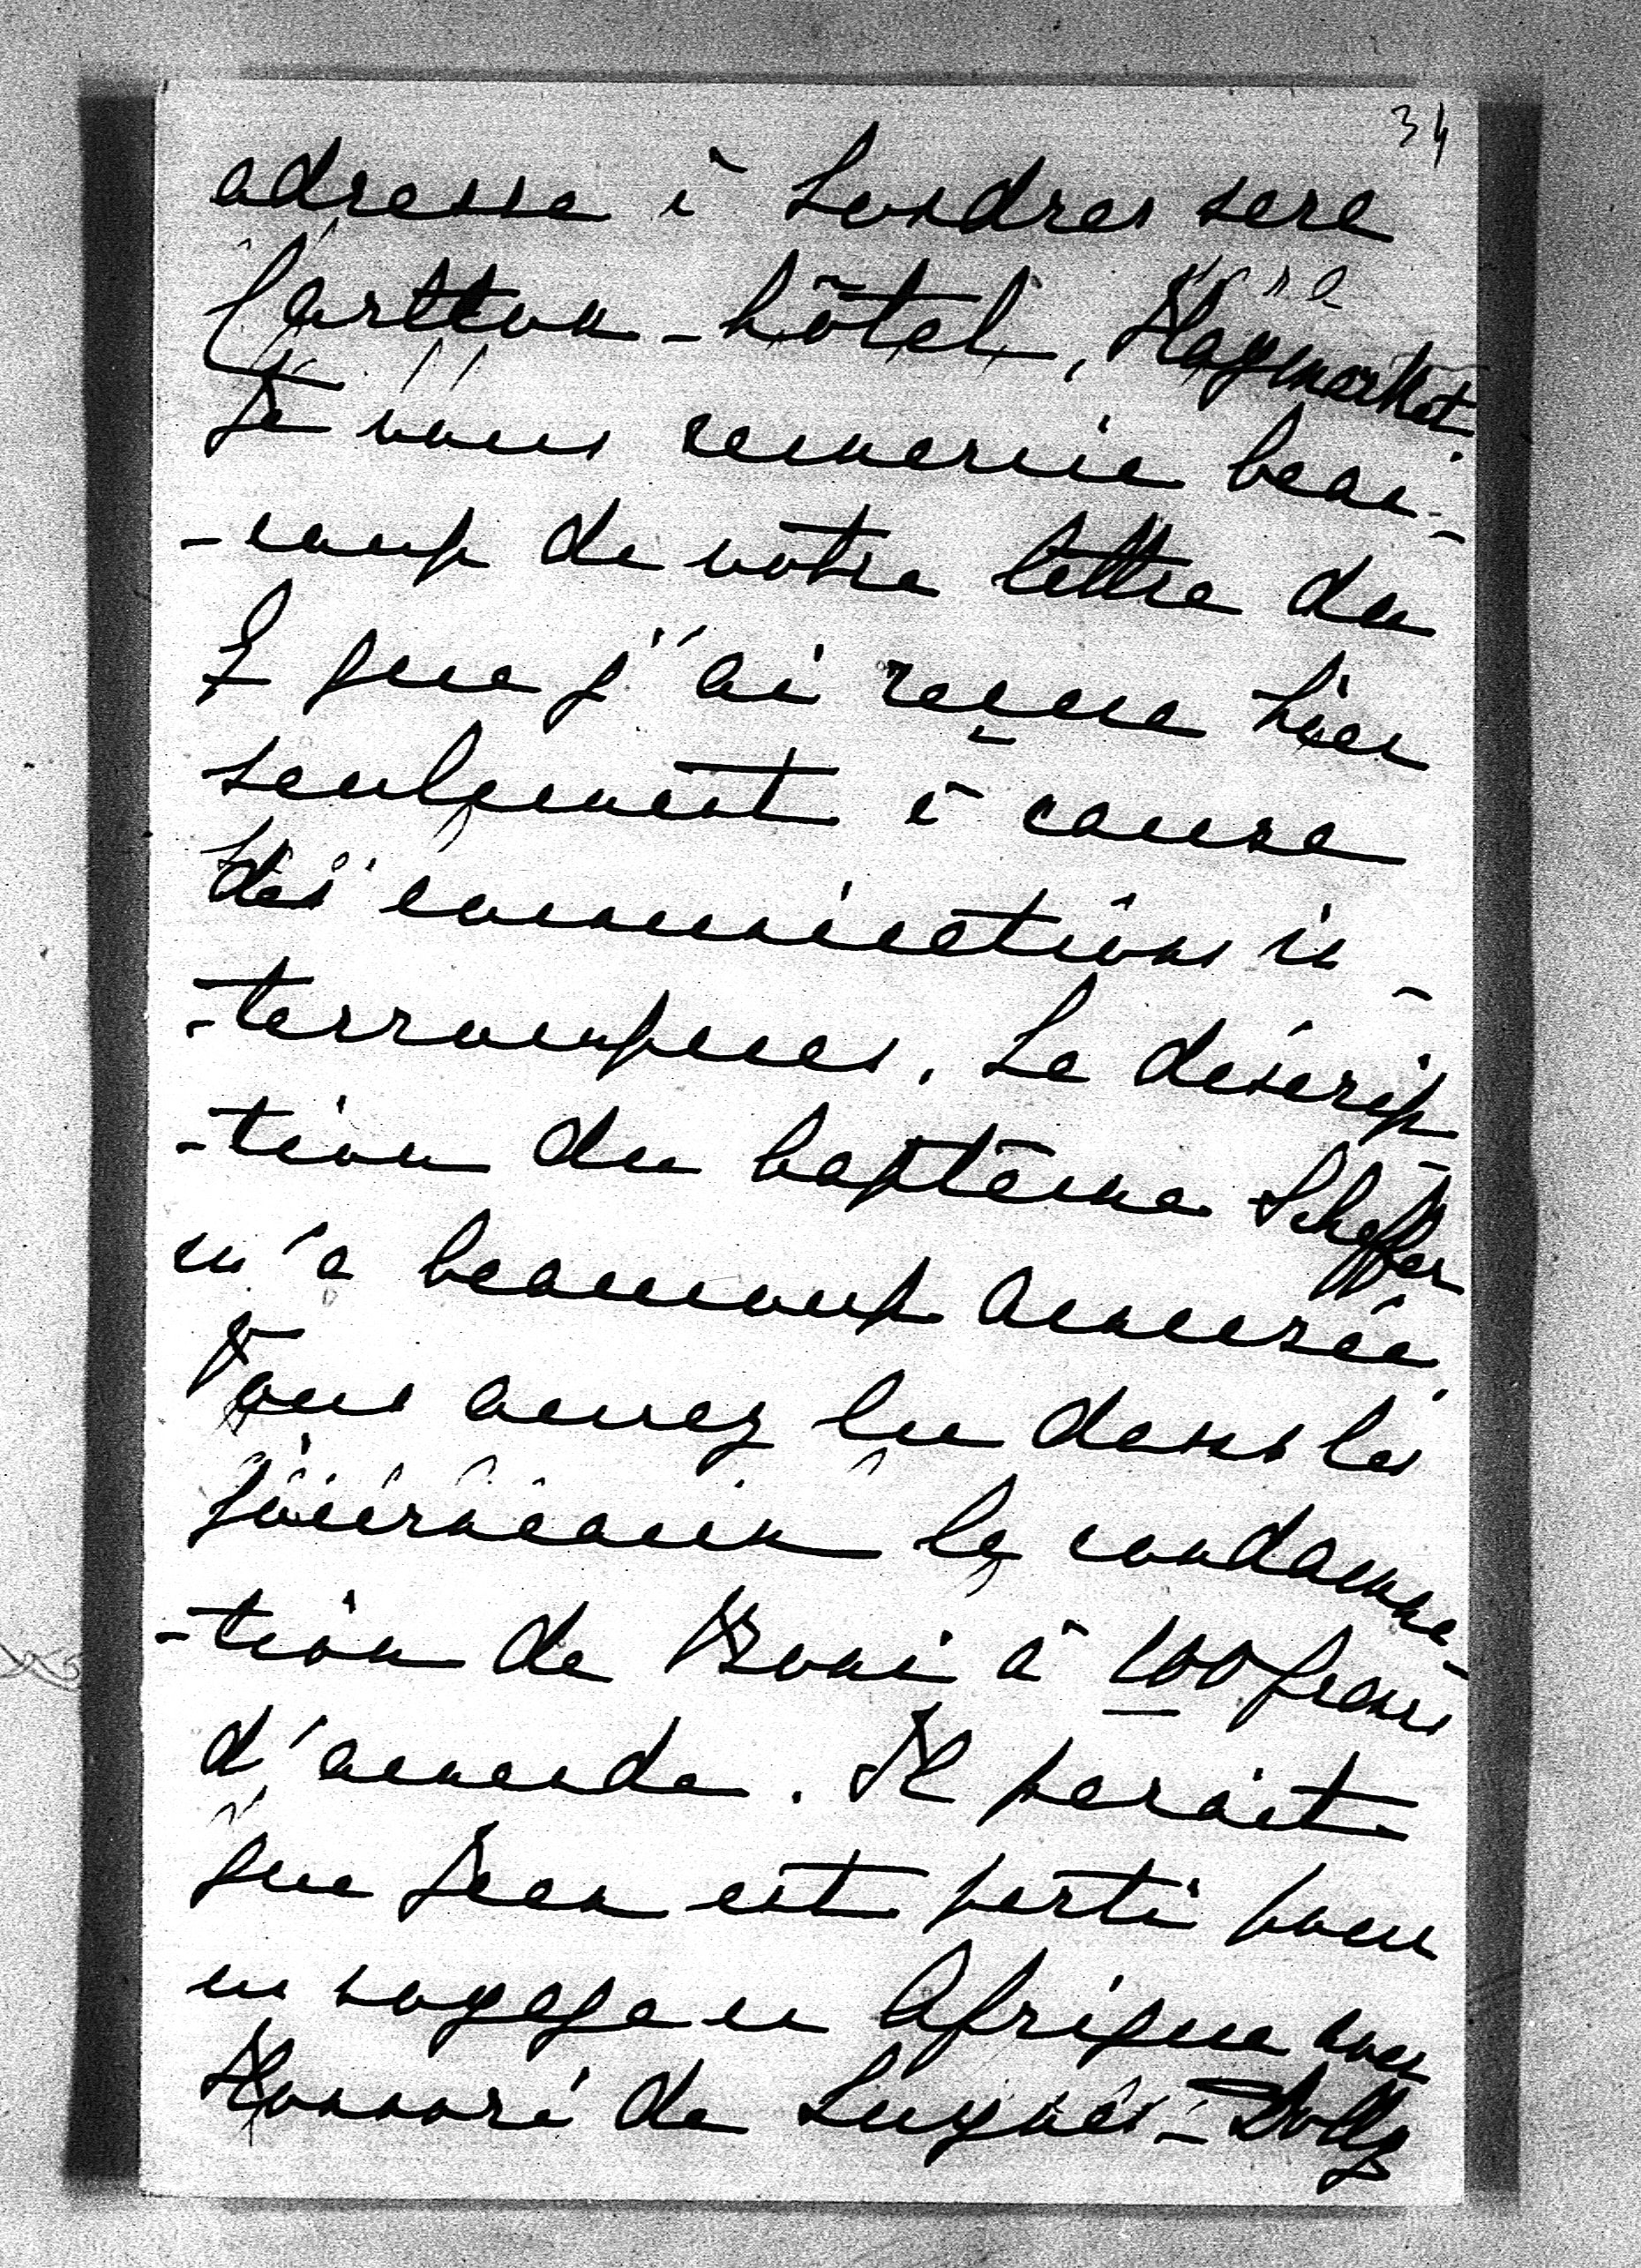 34
adresse à Londres sera
Carlton-hôtel, Haymarket.
Je vous remercie beau-
-coup de votre lettre du
que j'ai reçue hier
seulement à cause
des communications in-
-terrompues. La descrip-
-tion du baptême Scheffer
m'a beaucoup amusée.
Vous avez lu dans les
journaux la condamna-
-tion de Boni à 100 francs
d'amende. Il paraît
que Jean est parti pour
un voyage en Afrique avec
Honoré de Luynes - Dolly